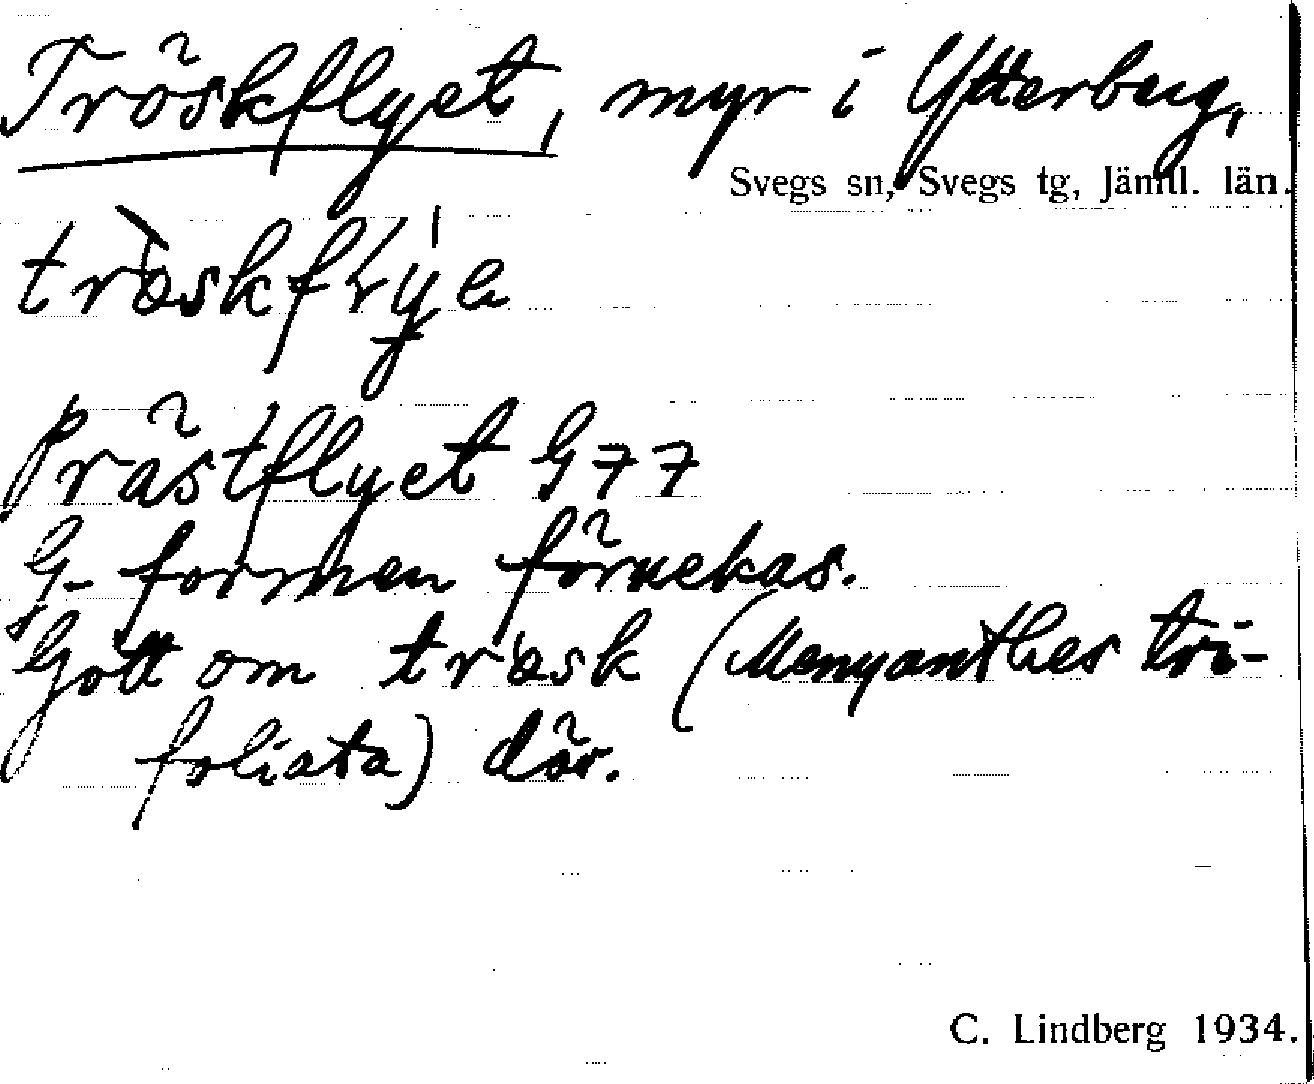 Tröskflyet, myr i Ytterberg,
Svegs sn, Svegs tg, Jämtl. län.
Prästflyet G77
G-formen förnekas.
Gott om trösk (Menyanthes tri-
foliata) där.
C. Lindberg 1934.